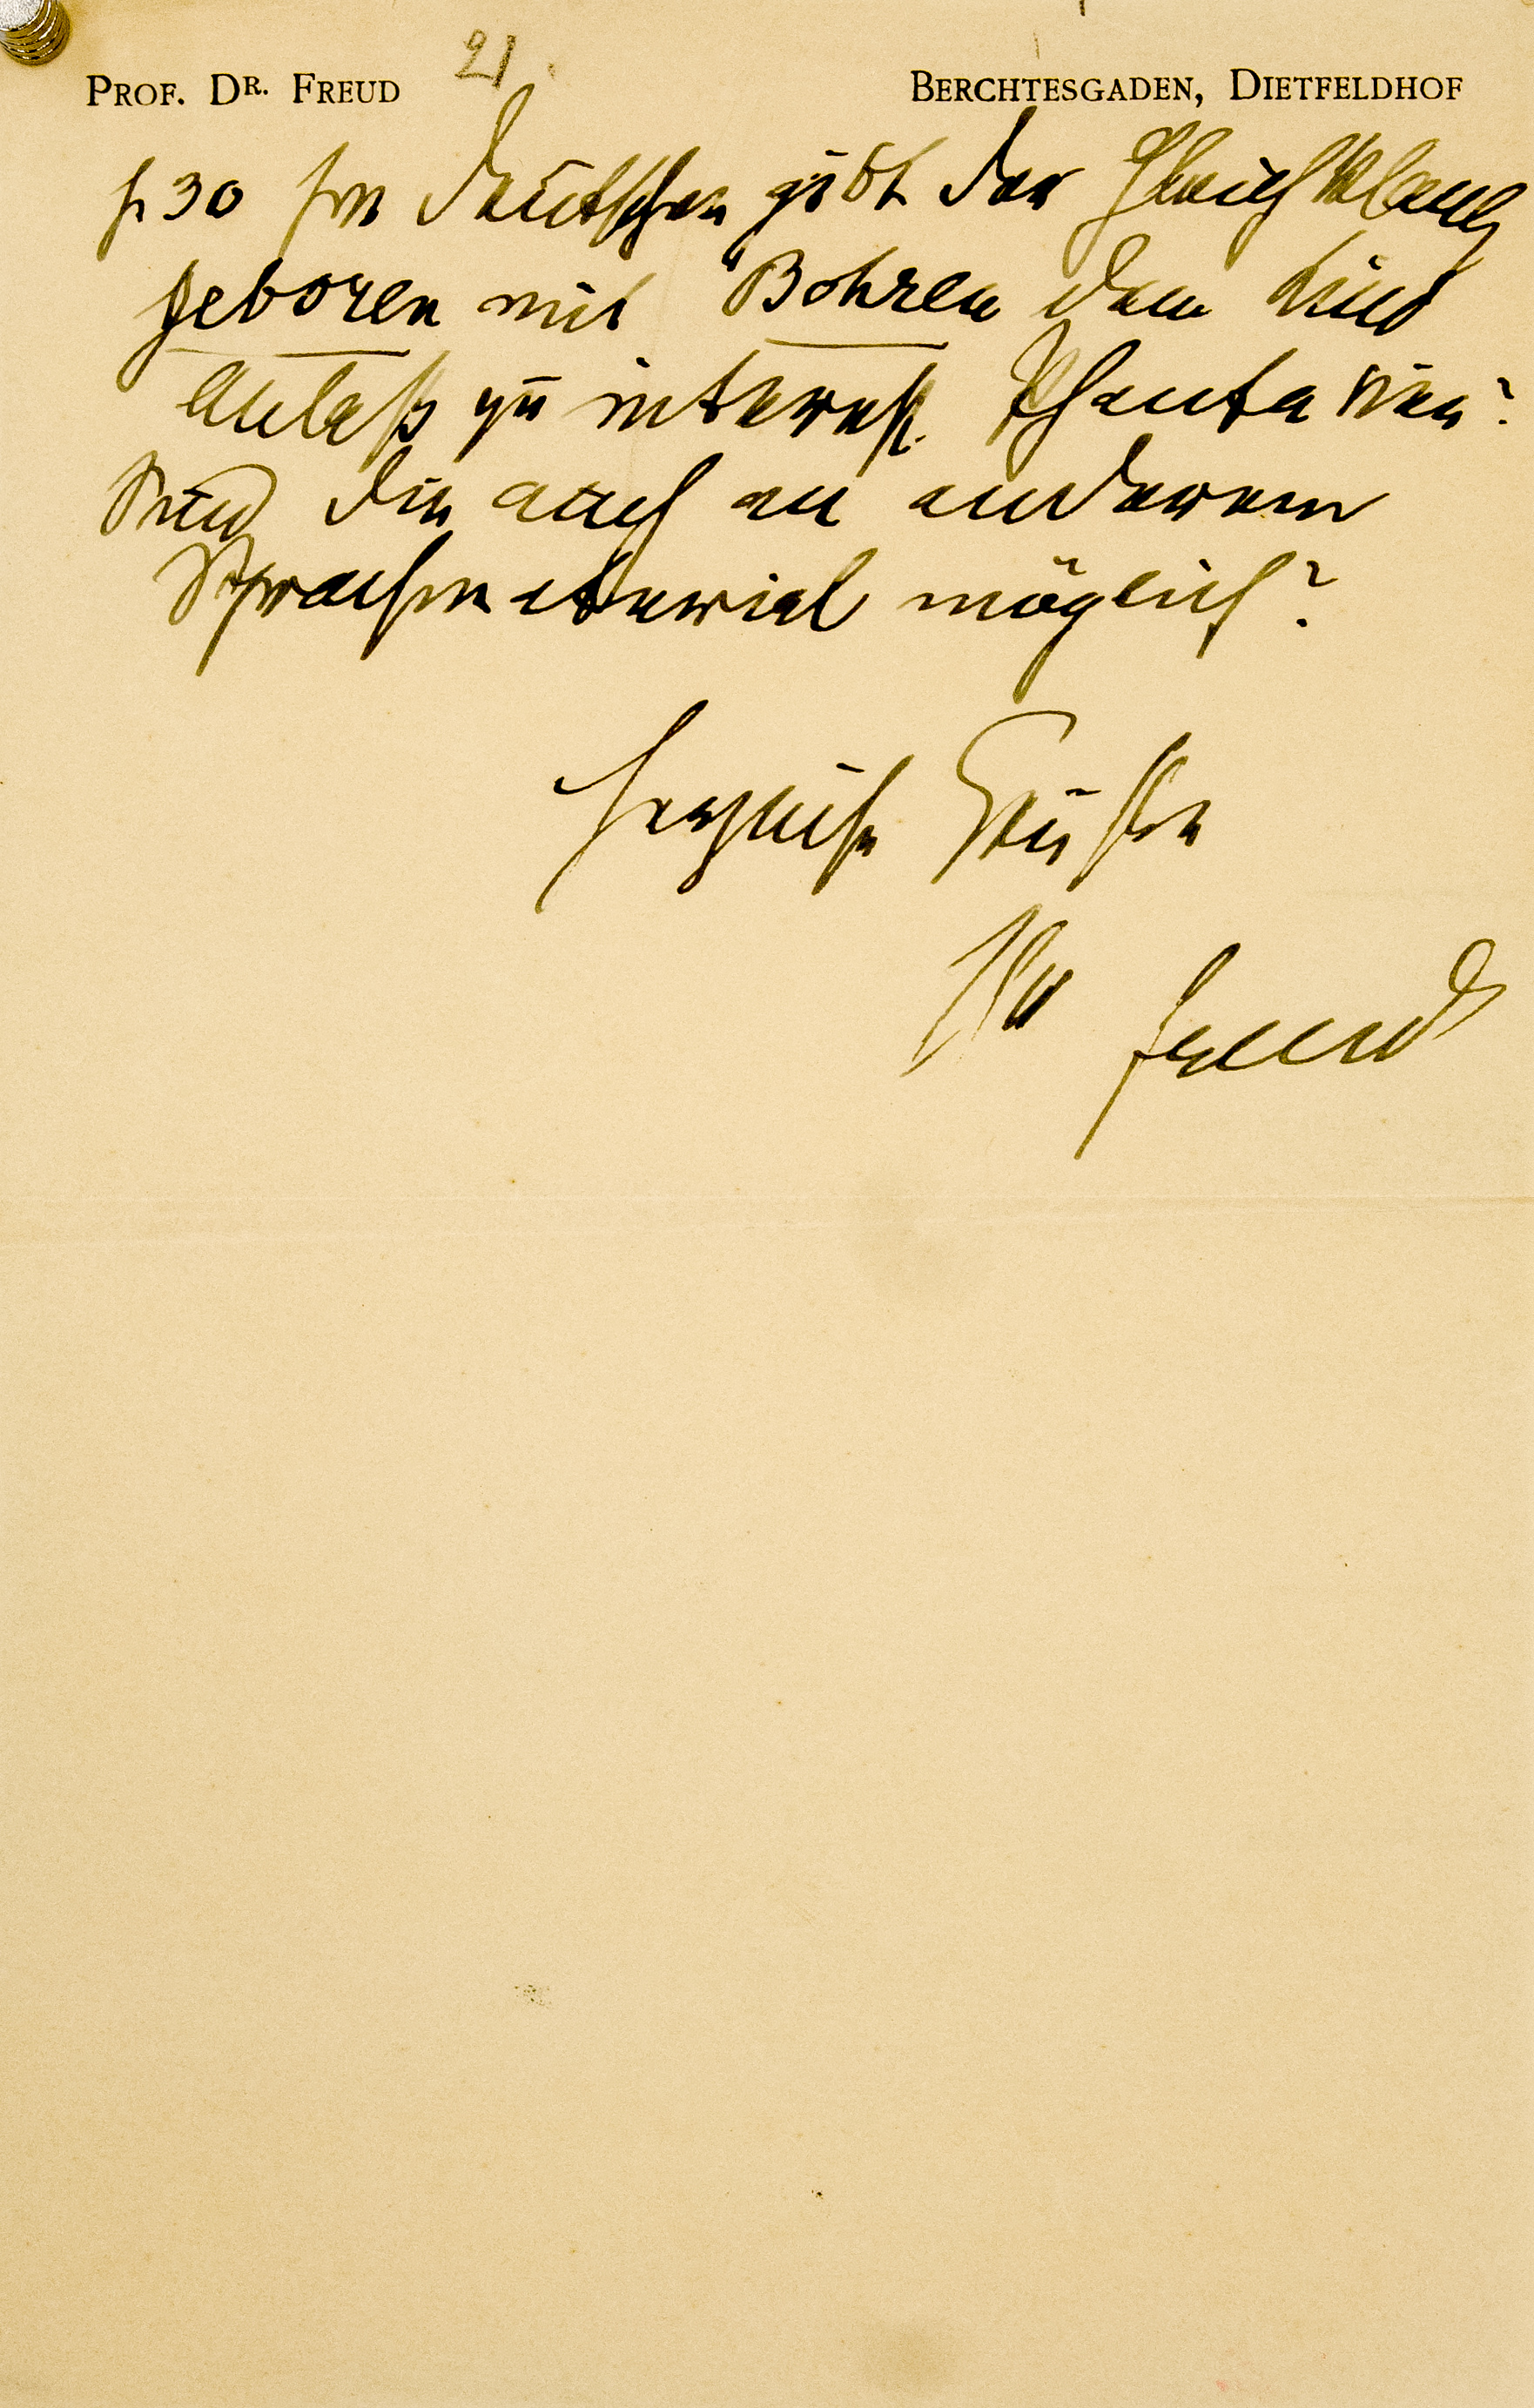 PROF. DR. FREUD 21. BERCHTESGADEN, DIETFELDHOF
p 30 Im Deutschen gibt der Gleichklang
geboren mit Bohren dem Kind
Anlaß zu interess. Phantasien.
Sind die auch an anderem
Sprachmaterial möglich?
Herzliche Grüße
Ihr Freud